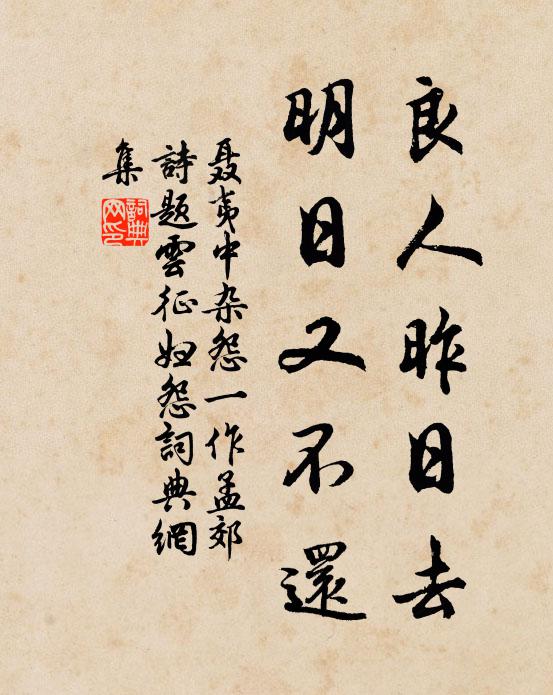 良人昨日去
明日又不還
聂夷中杂怨一作孟郊
詩题雲征妇怨詞典網
集
詞典
网印